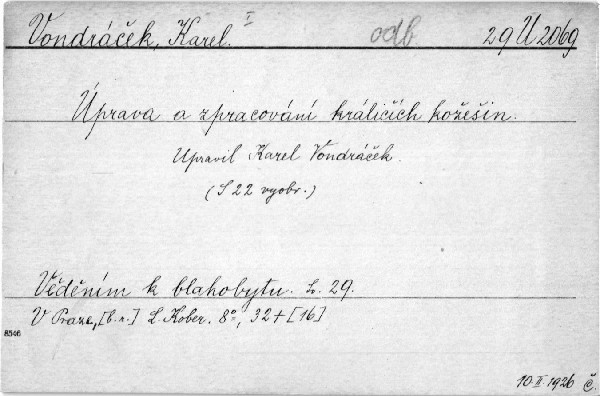 Vondráček, Karel. I odb 29 U 2069
Úprava a zpracování králičích kožešin.
Upravil Karel Vondráček.
(S 22 vyobr.)
Věděním k blahobytu. Sv. 29.
V Praze, [b. r.] L. Kober. 8°, 32 + [16]
8546
10. II. 1926 Č.